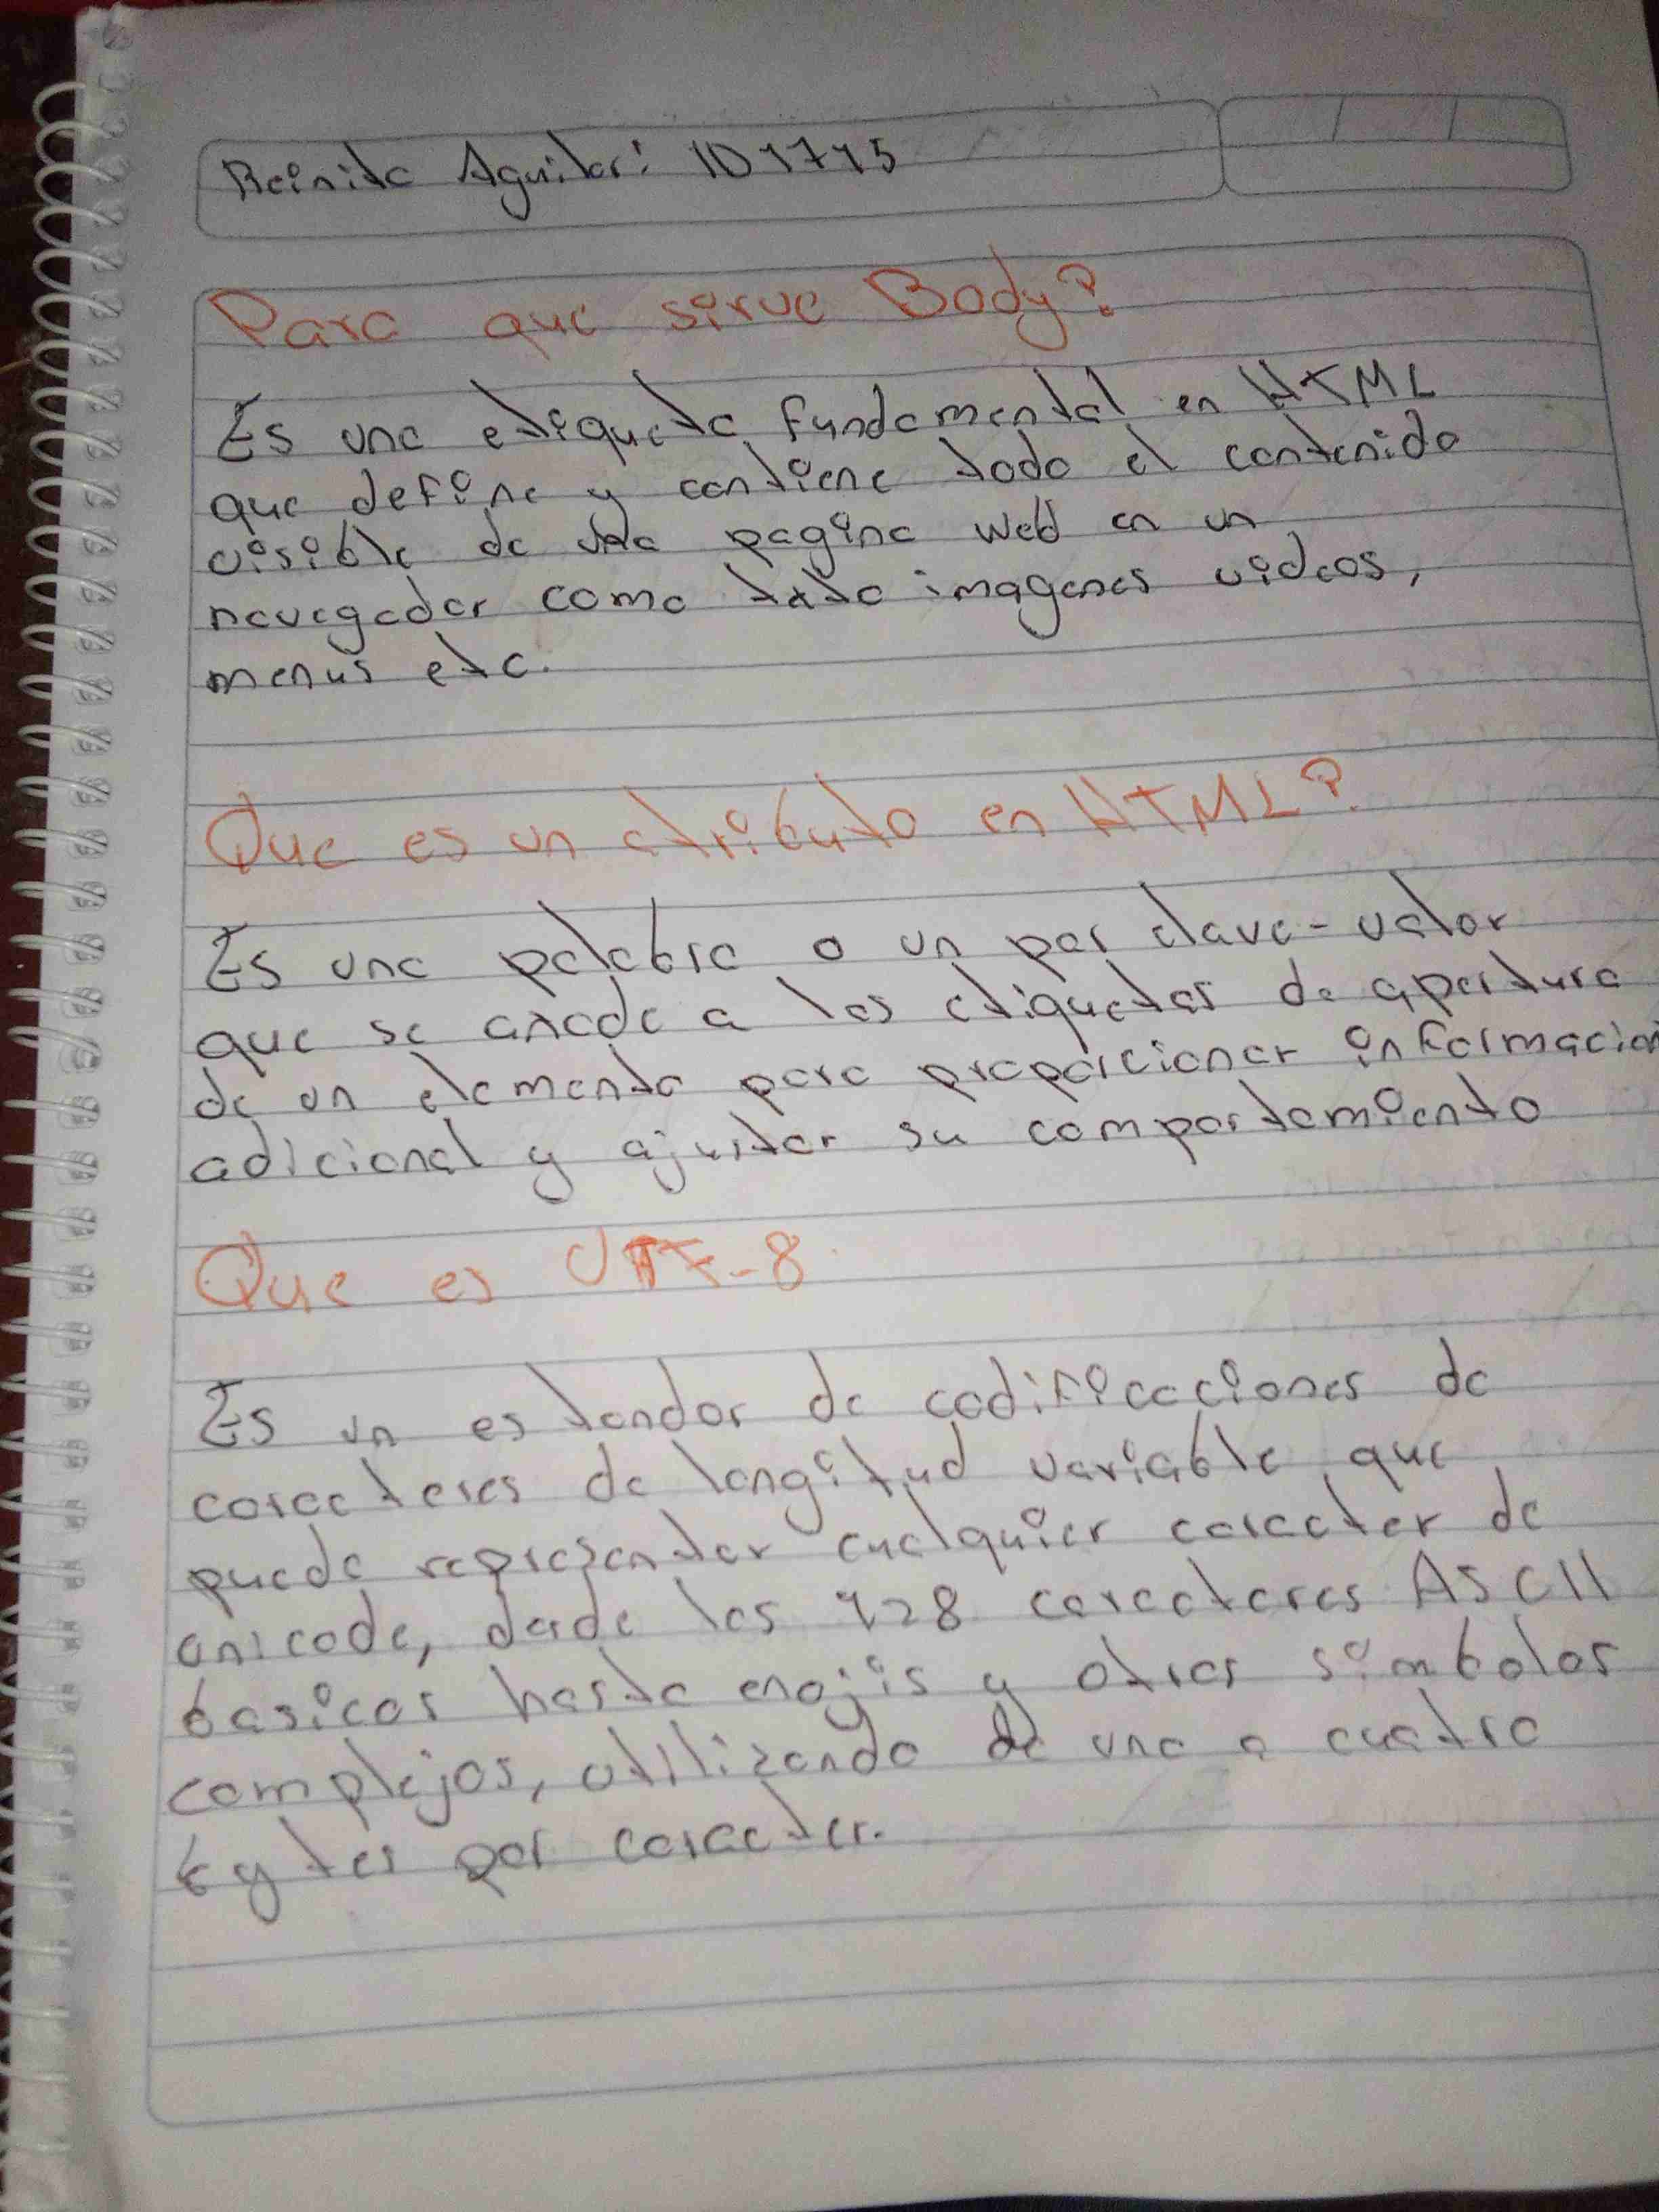 Reinita Aguilar: ID 1715
Para que sirve Body?
Es una etiqueta fundamental en HTML
que define y contiene todo el contenido
visible de una pagina web en un
navegador como texto imagenes videos,
menus etc.
Que es un atributo en HTML?
Es una palabra o un par clave-valor
que se anade a las etiquetas de apertura
de un elemento para proporcionar informacion
adicional y ajustar su comportamiento
Que es UTF-8
Es un estandar de codificaciones de
caracteres de longitud variable que
puede representar cualquier caracter de
unicode, desde los 128 caracteres ASCII
basicos hasta enojis y otros simbolos
complejos, utilizando de uno a cuatro
bytes por caracter.